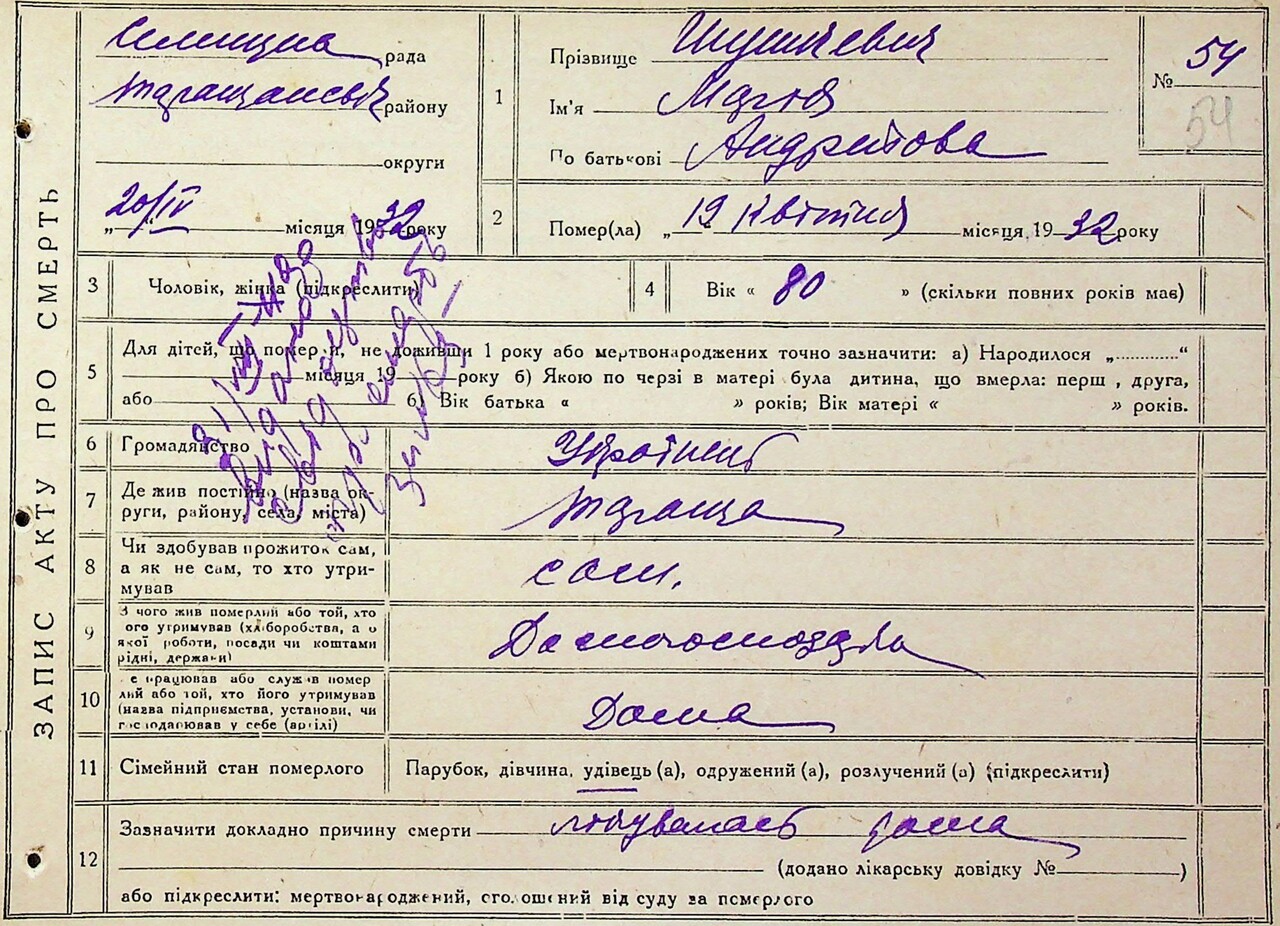 ЗАПИС АКТУ ПРО СМЕРТЬ
Селищна рада
Таращанськ району
округи
20/IV місяця 1932 року
1
Прізвище Шушкевич
Ім'я Марія
По батькові Андрієова
№ 54
54
2
Помер(ла) „ 12 Квітня місяця, 1932 року
3 Чоловік, жінка (підкреслити)
4 Вік « 80 » (скільки повних років має)
5
Для дітей, що померли, не доживши 1 року або мертвонароджених точно зазначити: а) Народилося „............“
місяця 19 року б) Якою по черзі в матері була дитина, що вмерла: перш , друга,
або б) Вік батька « » років; Вік матері « » років.
6 Громадянство Україньс
7 Де жив постійно (назва ок-
руги, району, села, міста) Тараща
8 Чи здобував прожиток сам,
а як не сам, то хто утри-
мував сам.
9 З чого жив померлий або той, хто
ого утримував (хліборобства, а о
якої роботи, посади чи коштами
рідні, держави)
10 е працював або служив помер
лий або той, хто його утримував
(назва підприємства, установи, чи
господарював у себе (артілі) Дома
11 Сімейний стан померлого Парубок, дівчина, удівець (а), одружений (а), розлучений (а) (підкреслити)
12
Зазначити докладно причину смерти
(додано лікарську довідку № )
або підкреслити: мертвонароджений, оголошений від суду за померлого